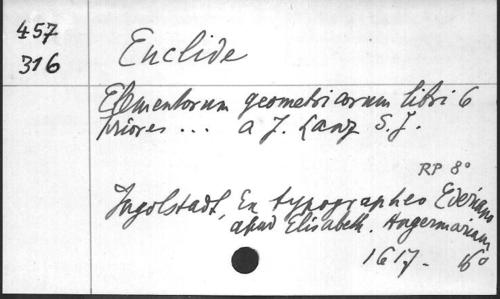 457
316
Euclide
Elementorum geometricorum libri 6
priores ... a J. Lanz S.J.
RP 8°
Ingolstadt, Ex typographeo Ederiano
apud Elisabeth. Angermariam
1617 - 16°